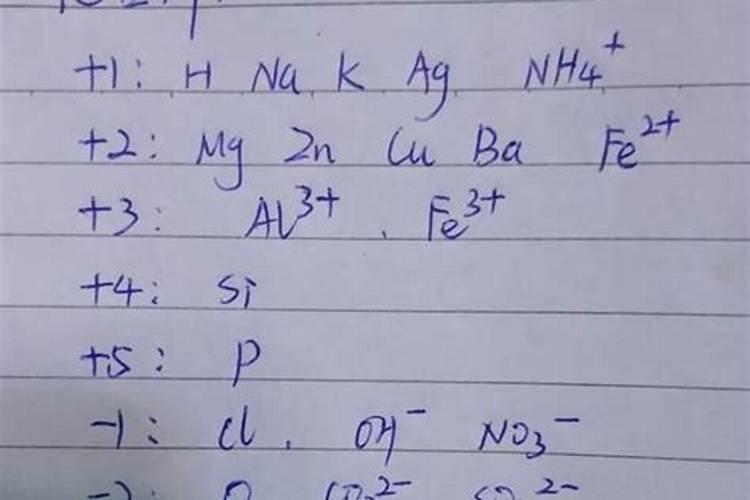 +1: H Na K Ag NH₄⁺
+2: Mg Zn Cu Ba Fe²⁺
+3: Al³⁺ . Fe³⁺
+4: Si
+5: P
-1: Cl . OH⁻ NO₃⁻
-2: O